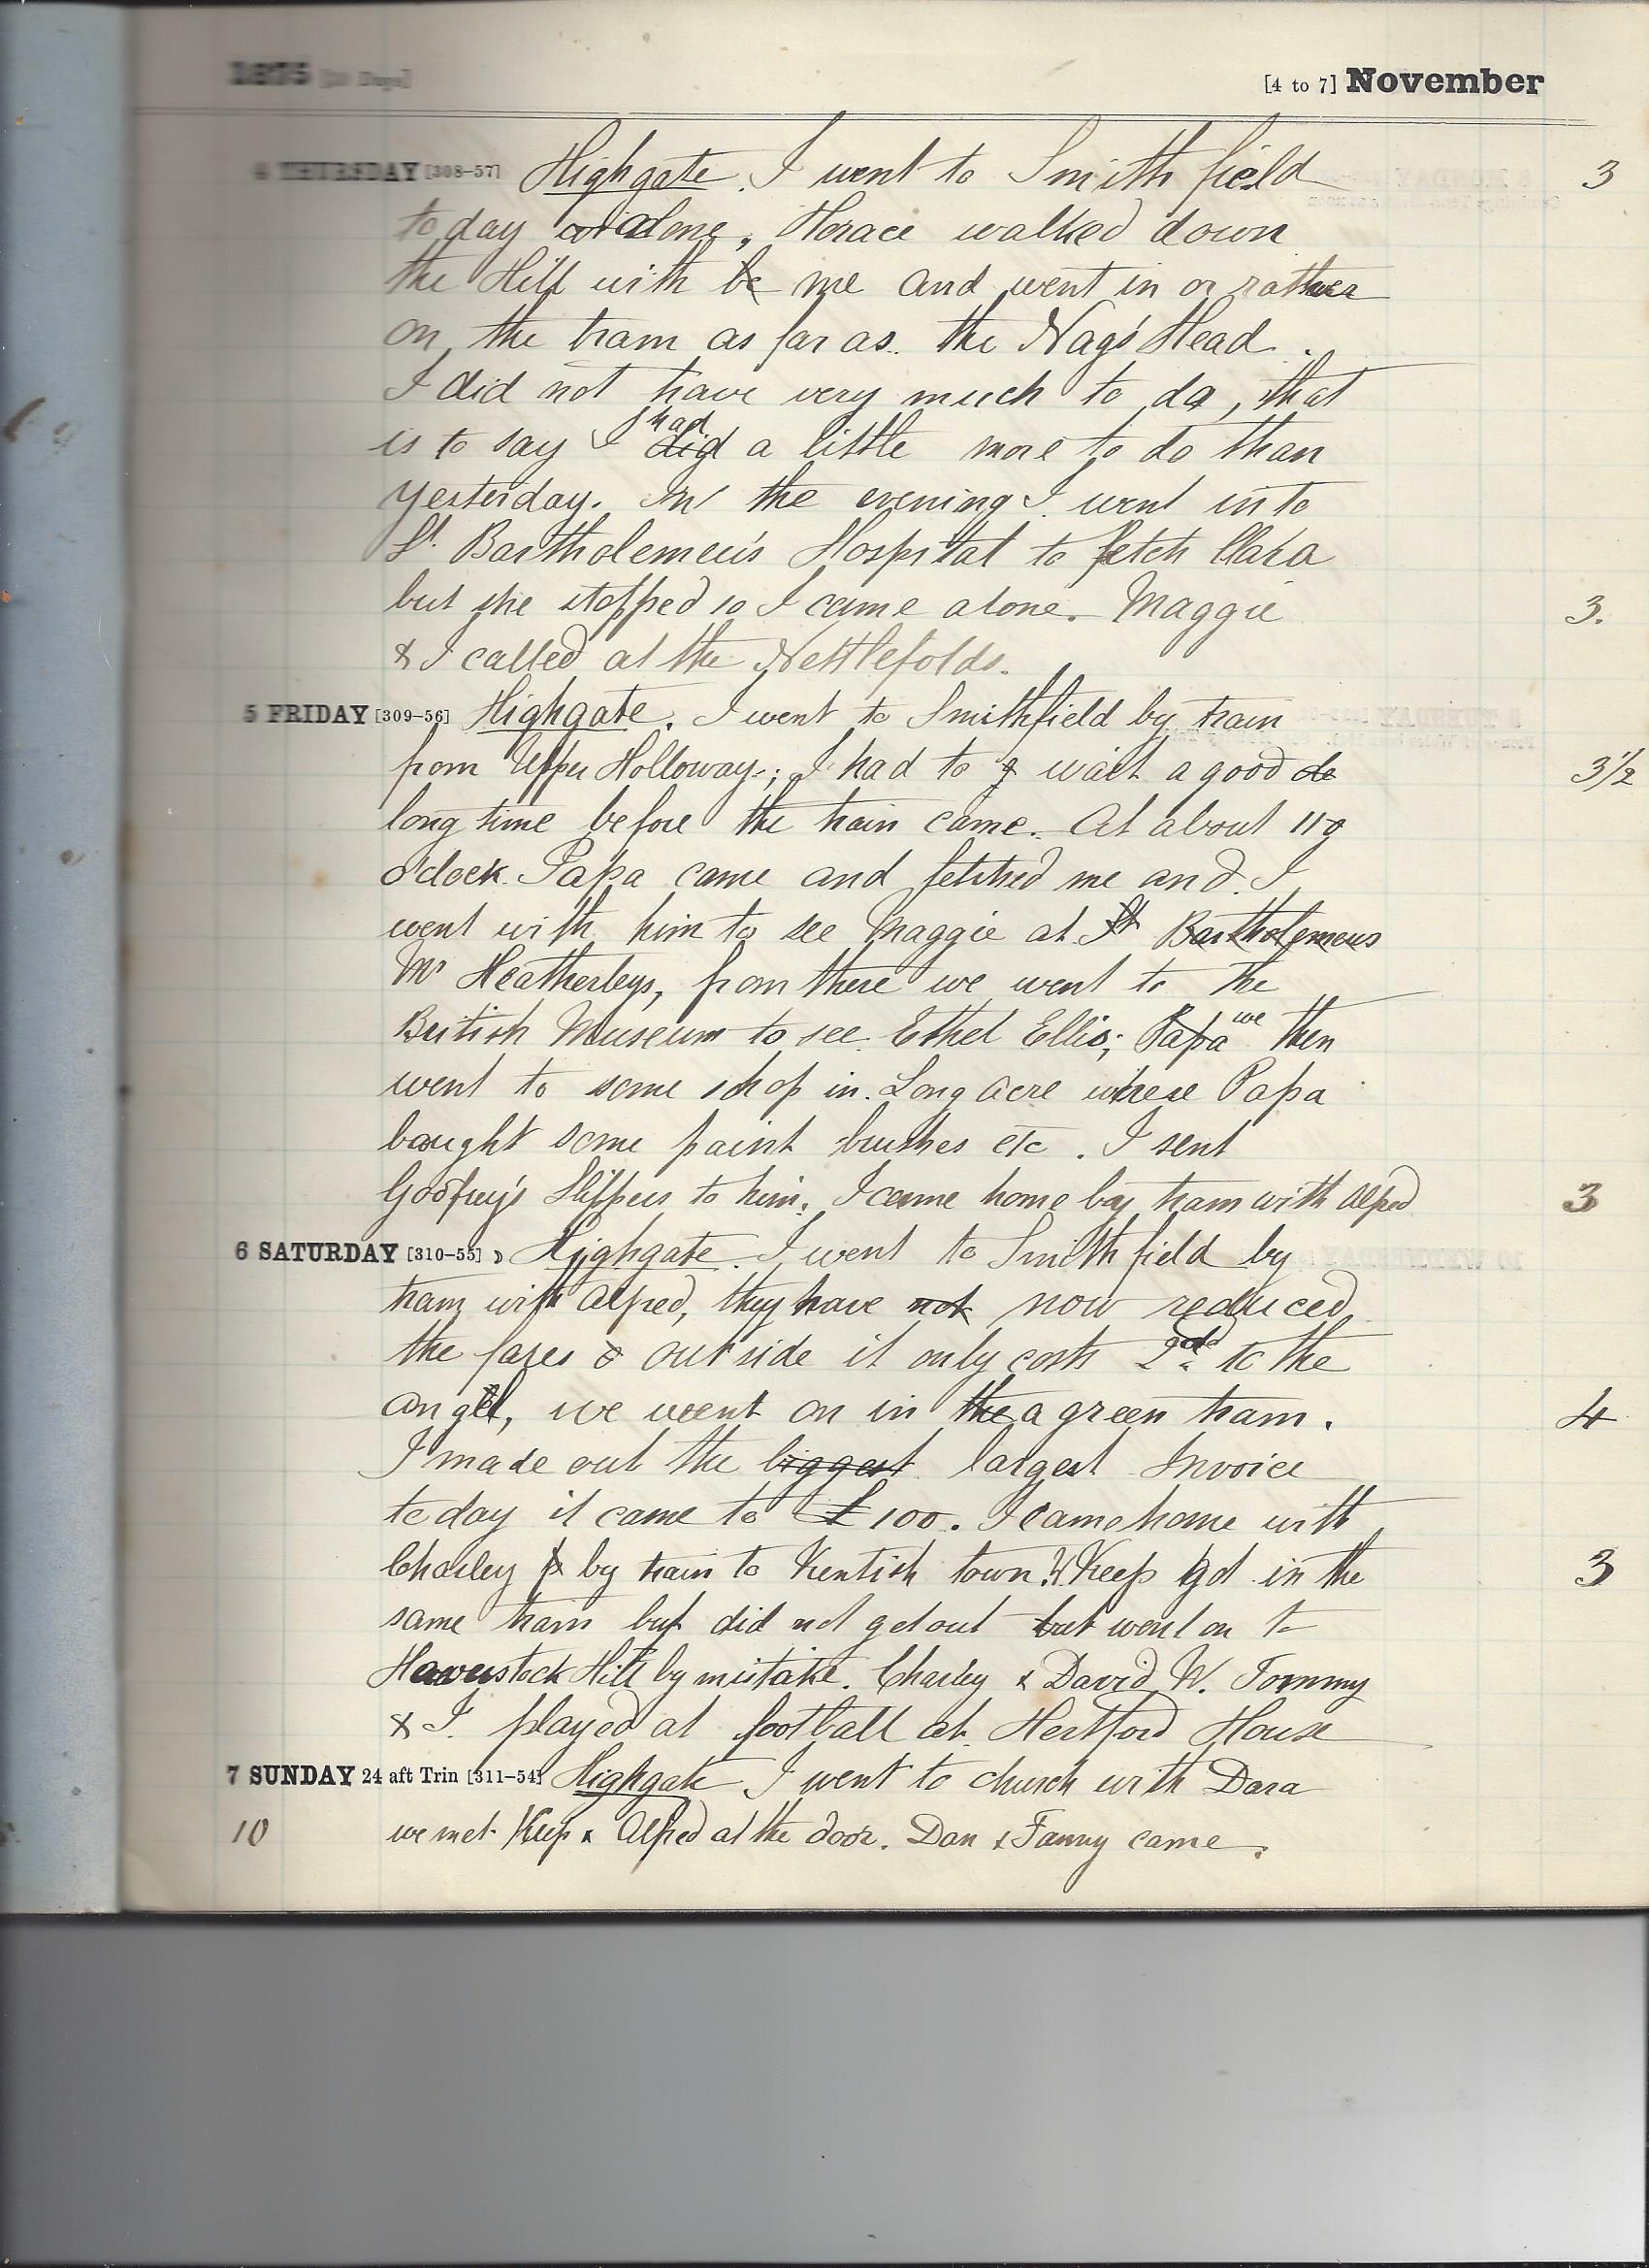 1875 [30 Days] [4 to 7] November
4 THURSDAY [308-57] Highgate. I went to Smithfield 3
today wi alone, Horace walked down
the Hill with be me and went in or rather
on the tram as far as the Nag's Head.
I did not have very much to do, that
is to say I did had a little more to do than
yesterday. In the evening I went into
St. Bartholemew's Hospital to fetch Clara
but she stopped so I came alone. Maggie 3.
& I called at the Nettlefolds.
5 FRIDAY [309-56] Highgate. I went to Smithfield by train
from Upper Holloway; I had to g wait a good de 3½
long time before the train came. At about 11
o'clock Papa came and fetched me and I
went with him to see Maggie at St Bartholemews
Mr Heatherleys, from there we went to the
British Museum to see Ethel Ellis; Papa we then
went to some shop in Long Acre where Papa
bought some paint brushes etc. I sent
Godfrey's Slippers to him. I came home by tram with Alfred 3
6 SATURDAY [310-55] ☽ Highgate. I went to Smithfield by
tram with Alfred, they have not now reduced
the fares & outside it only costs 2d to the
angel, we went on in the a green tram. 4
I made out the biggest largest Invoice
today it came to £100. I came home with
Charley by train to Kentish town & Keep got in the 3
same train but did not get out but went on to
Haverstock Hill by mistake. Charley & David W. Tommy
& I played at football at Hertford House
7 SUNDAY 24 aft Trin [311-54] Highgate I went to church with Dara
10 we met Keep & Alfred at the door. Dan & Fanny came.